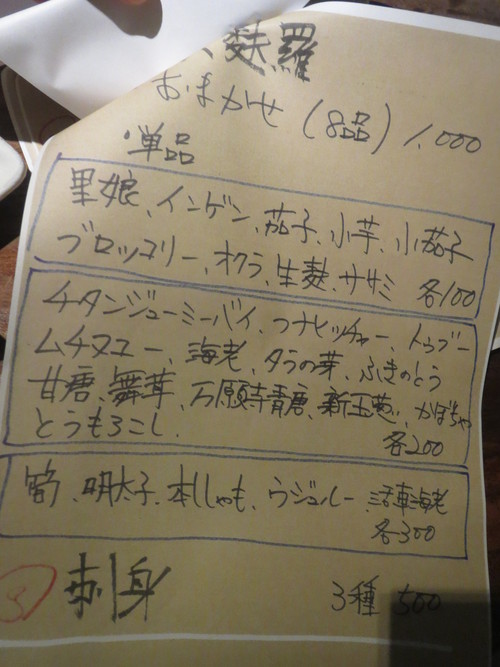 麩羅
おまかせ (8品) 1,000
・単品
里娘、インゲン、茄子、小芋、小茄子
ブロッコリー、オクラ、生麩、ササミ 各100
チタンジューミーバイ、フナヒッチャー、トゥブー
ムチヌユー、海老、タラの芽、ふきのとう
甘唐、舞茸、万願寺青唐、新玉葱、かぼちゃ
とうもろこし. 各200
明太子、本ししゃも、ウジュルー、活車海老
各300
③ 刺身 3種 500